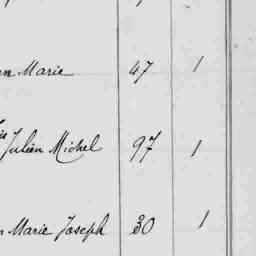 Marie 47 1
Julien Michel 97 1
Marie Joseph 30 1